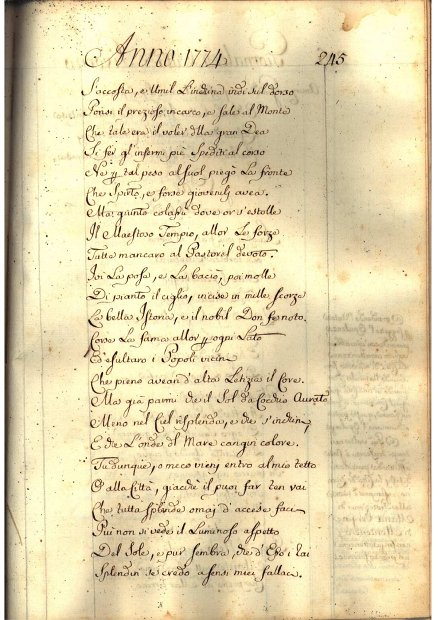 Anno 1774
245
S'accosta, e Umil L'inchina indi sul dorso
Ponsi il prezioso incarco, e sale al Monte
Che tale era il voler dlla gran Dea
Si fer gl'infermi piè Spediti al corso
Ne p tal peso al suol piegò La fronte
Che Spirto, e forse giovenili avea.
Ma giunto colassù dove or s'estolle
Il Maestoso Tempio, allor Le forze
Tutte mancaro al Pastorel devoto.
Ivi La posa, e La baciò, poi molle
Di pianto il ciglio, incise in mille scorze
La bella Istoria, e il nobil Don fe noto.
Corse La fama allor p ogni Lato
Ed esultaro i Popoli vicini
Che pieno avean d'alta Letizia il Core.
Ma già parmi che il Sol da Cocchio Aurato
Meno nel Ciel risplenda, e che s'inchini
E che L'onde dl Mare cangin colore.
Tu dunque, o meco vieni entro al mio tetto
O alla Città, giacchè il puoi far ten vai
Che tutta splende omai d'accese faci
Più non si vede il Luminoso aspetto
Del Sole, e pur sembra, che d'Esso i rai
Splendin se credo a sensi miei fallaci.